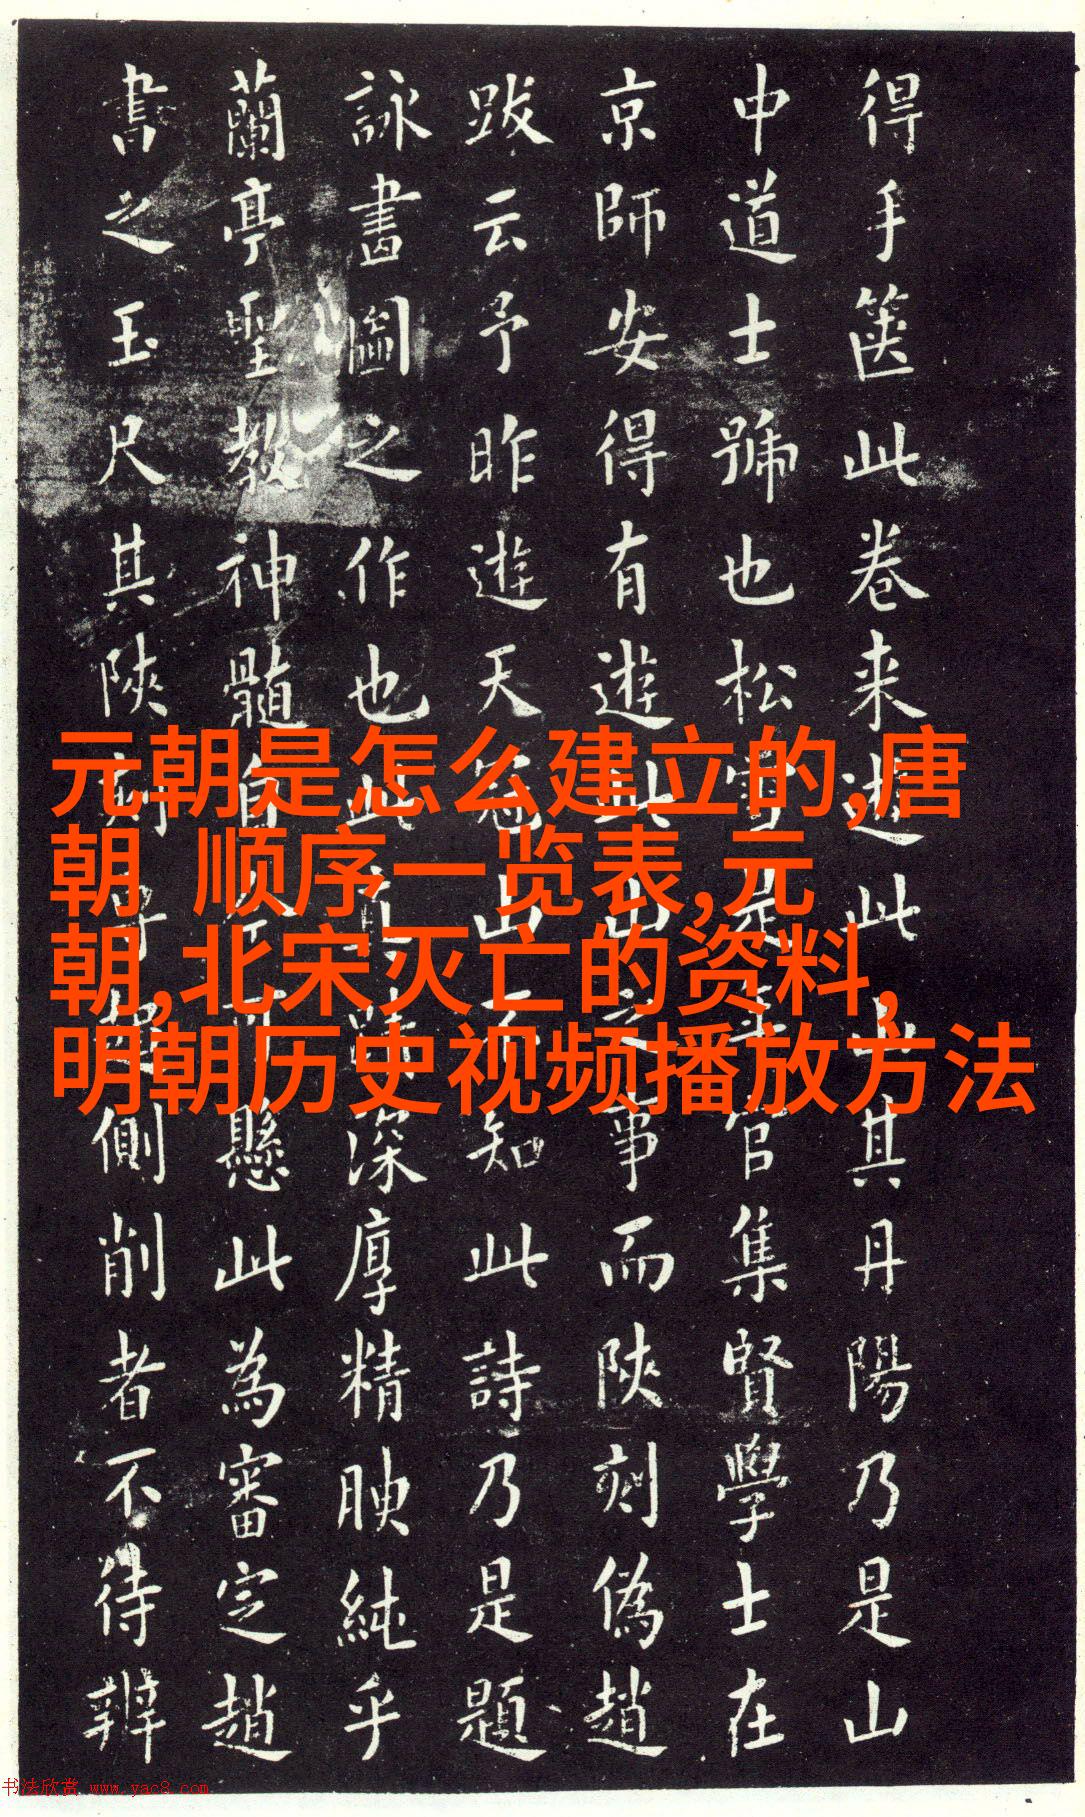 得手箧此卷来遊此山其丹陽乃是山
中道士號也松雪是官集賢學士在
京師安得有遊此山之事而陝刻偽趙
跋云予昨遊天冠山不知此詩乃是題
詠畫圖之作也此深厚精腴純乎
蘭亭聖教神髓自可懸此為審定趙
書之玉尺其陝刻字側削者不待辨
元朝是怎么建立的,唐
朝 顺序一览表,元
朝,北宋灭亡的资料,
明朝历史视频播放方法
书法欣赏 www.yac8.com